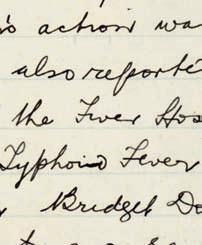 o action wa
also reporte
the Fever Hos
Typhoid Fever
Bridget Do